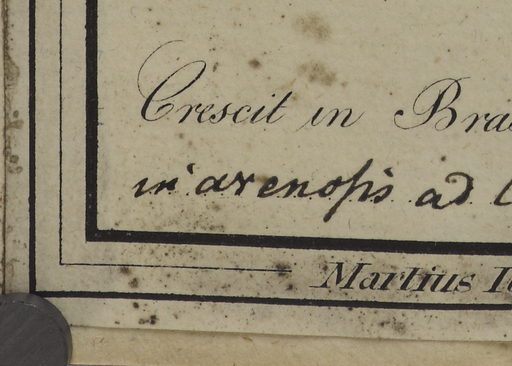 Crescit in Bras
in arenosis ad
Martius It